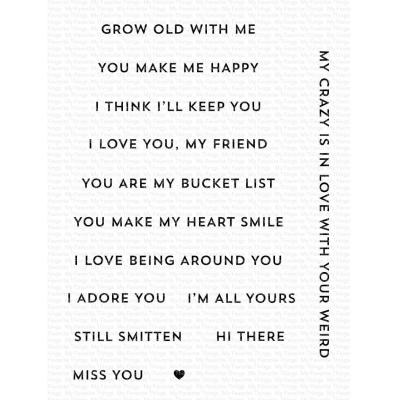 GROW OLD WITH ME
YOU MAKE ME HAPPY
I THINK I'LL KEEP YOU
I LOVE YOU, MY FRIEND
YOU ARE MY BUCKET LIST
YOU MAKE MY HEART SMILE
I LOVE BEING AROUND YOU
I ADORE YOU I'M ALL YOURS
STILL SMITTEN HI THERE
MISS YOU
MY CRAZY IS IN LOVE WITH YOUR WEIRD